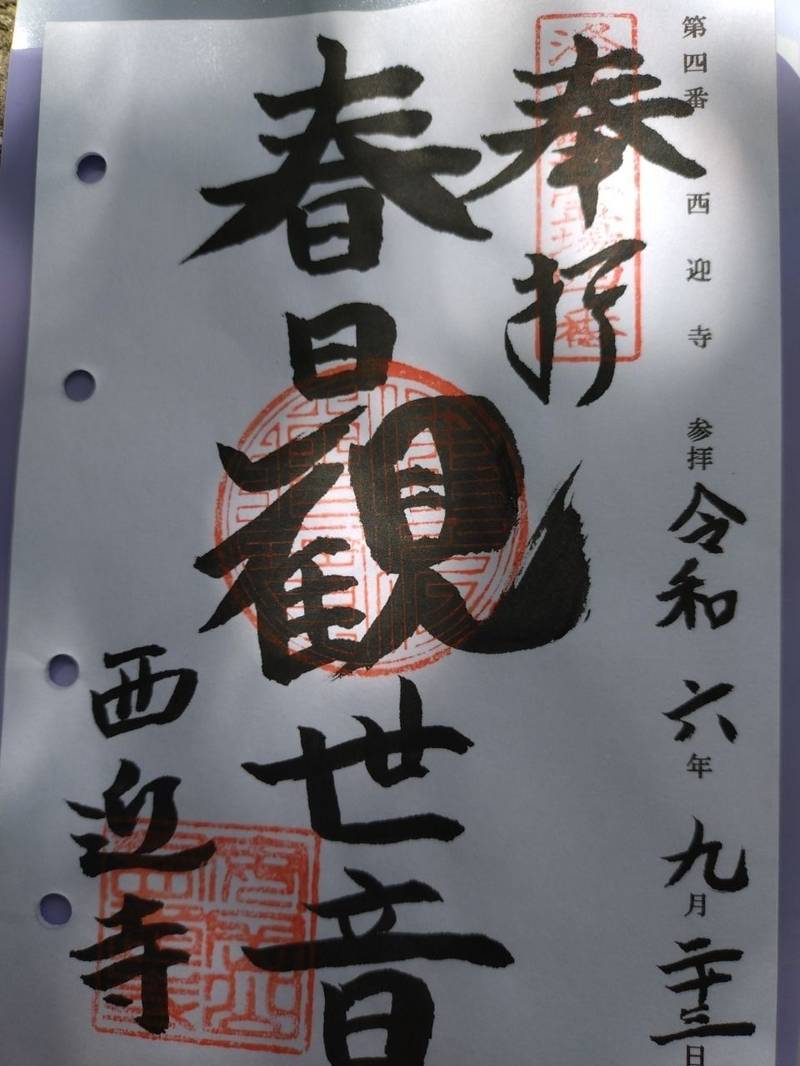 第四番 西迎寺 参拝 令和 六年 九月 二十三日
奉拝
春日観世音
西迎寺